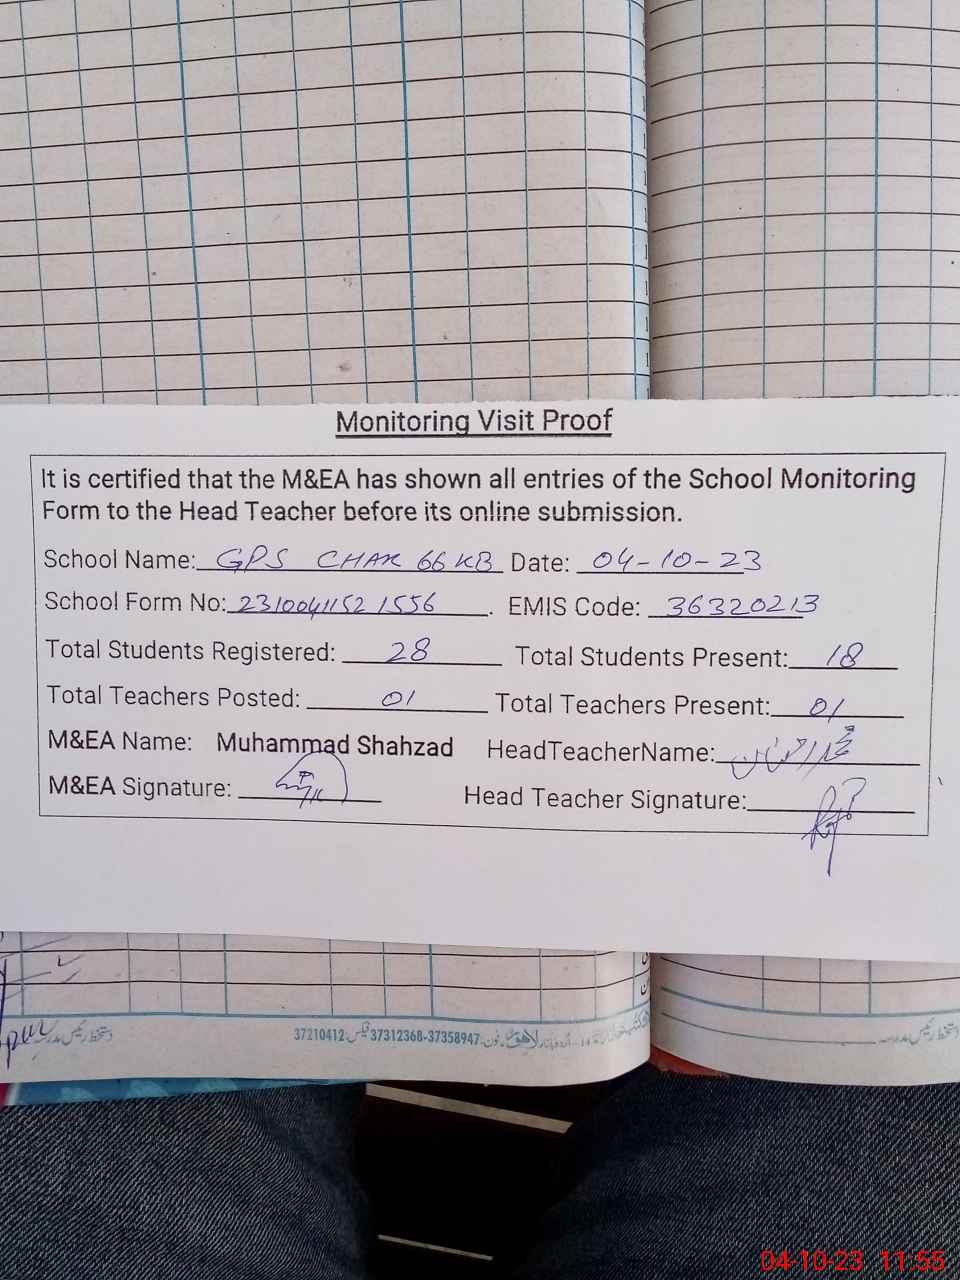 Monitoring Visit Proof
It is certified that the M&EA has shown all entries of the School Monitoring
Form to the Head Teacher before its online submission.
School Name: GPS CHAK 66 KB Date: 04-10-23
School Form No: 23100411521556. EMIS Code: 36320213
Total Students Registered: 28 Total Students Present: 18
Total Teachers Posted: 01 Total Teachers Present: 01
M&EA Name: Muhammad Shahzad HeadTeacherName:
M&EA Signature: Head Teacher Signature:
37210412 فیکس 37312368-37358947 فون
04-10-23 11:55